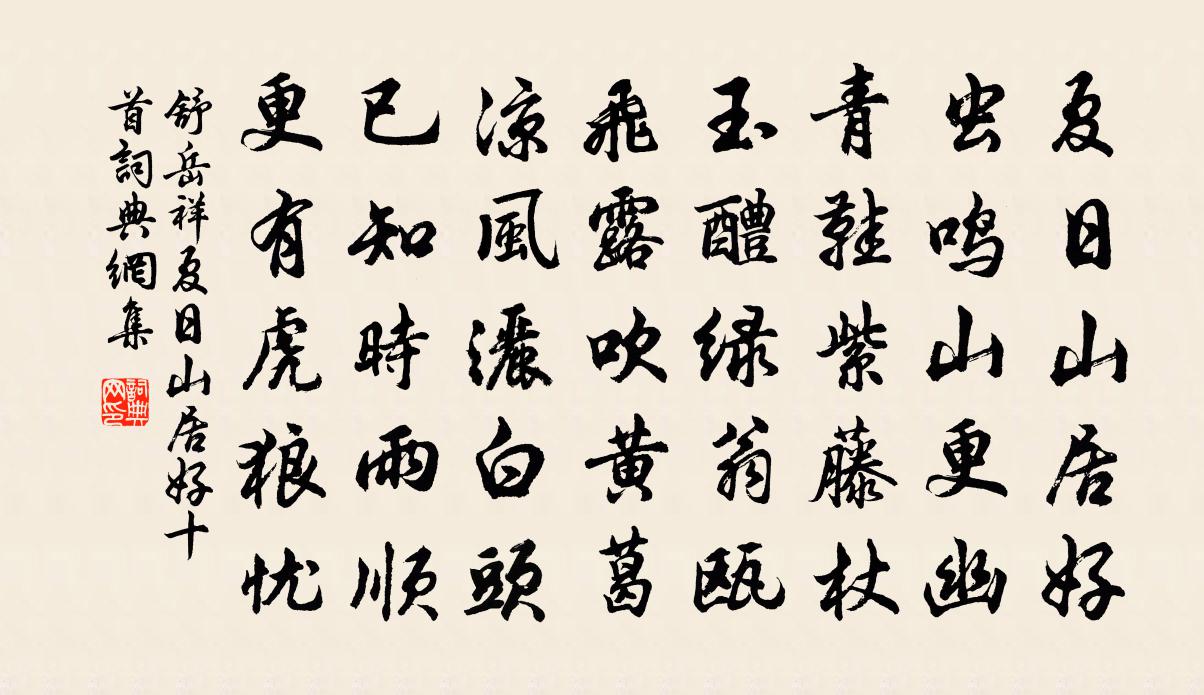 夏日山居好
虫鸣山更幽
青鞋紫藤杖
玉醴绿翁瓯
飛露吹黄葛
凉風灑白頭
已知時雨順
更有虎狼忧
舒岳祥夏日山居好十
首詞典網集
詞典
网印